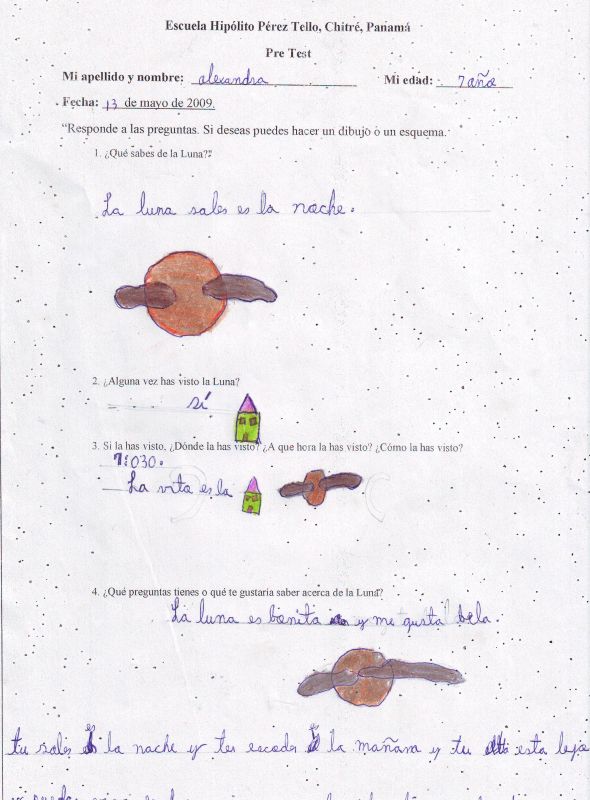 Escuela Hipólito Pérez Tello, Chitré, Panamá
Pre Test
Mi apellido y nombre: alexandra Mi edad: 7 año
Fecha: 13 de mayo de 2009.
“Responde a las preguntas. Si deseas puedes hacer un dibujo o un esquema.
1. ¿Qué sabes de la Luna?
La luna sales es la noche.
2. ¿Alguna vez has visto la Luna?
sí
3. Si la has visto, ¿Dónde la has visto? ¿A que hora la has visto? ¿Cómo la has visto?
1:030.
La vita es la
4. ¿Qué preguntas tienes o qué te gustaría saber acerca de la Luna?
La luna es bonita y me gusta bela.
tu sales es la noche y tes la mañana y tu esta leja